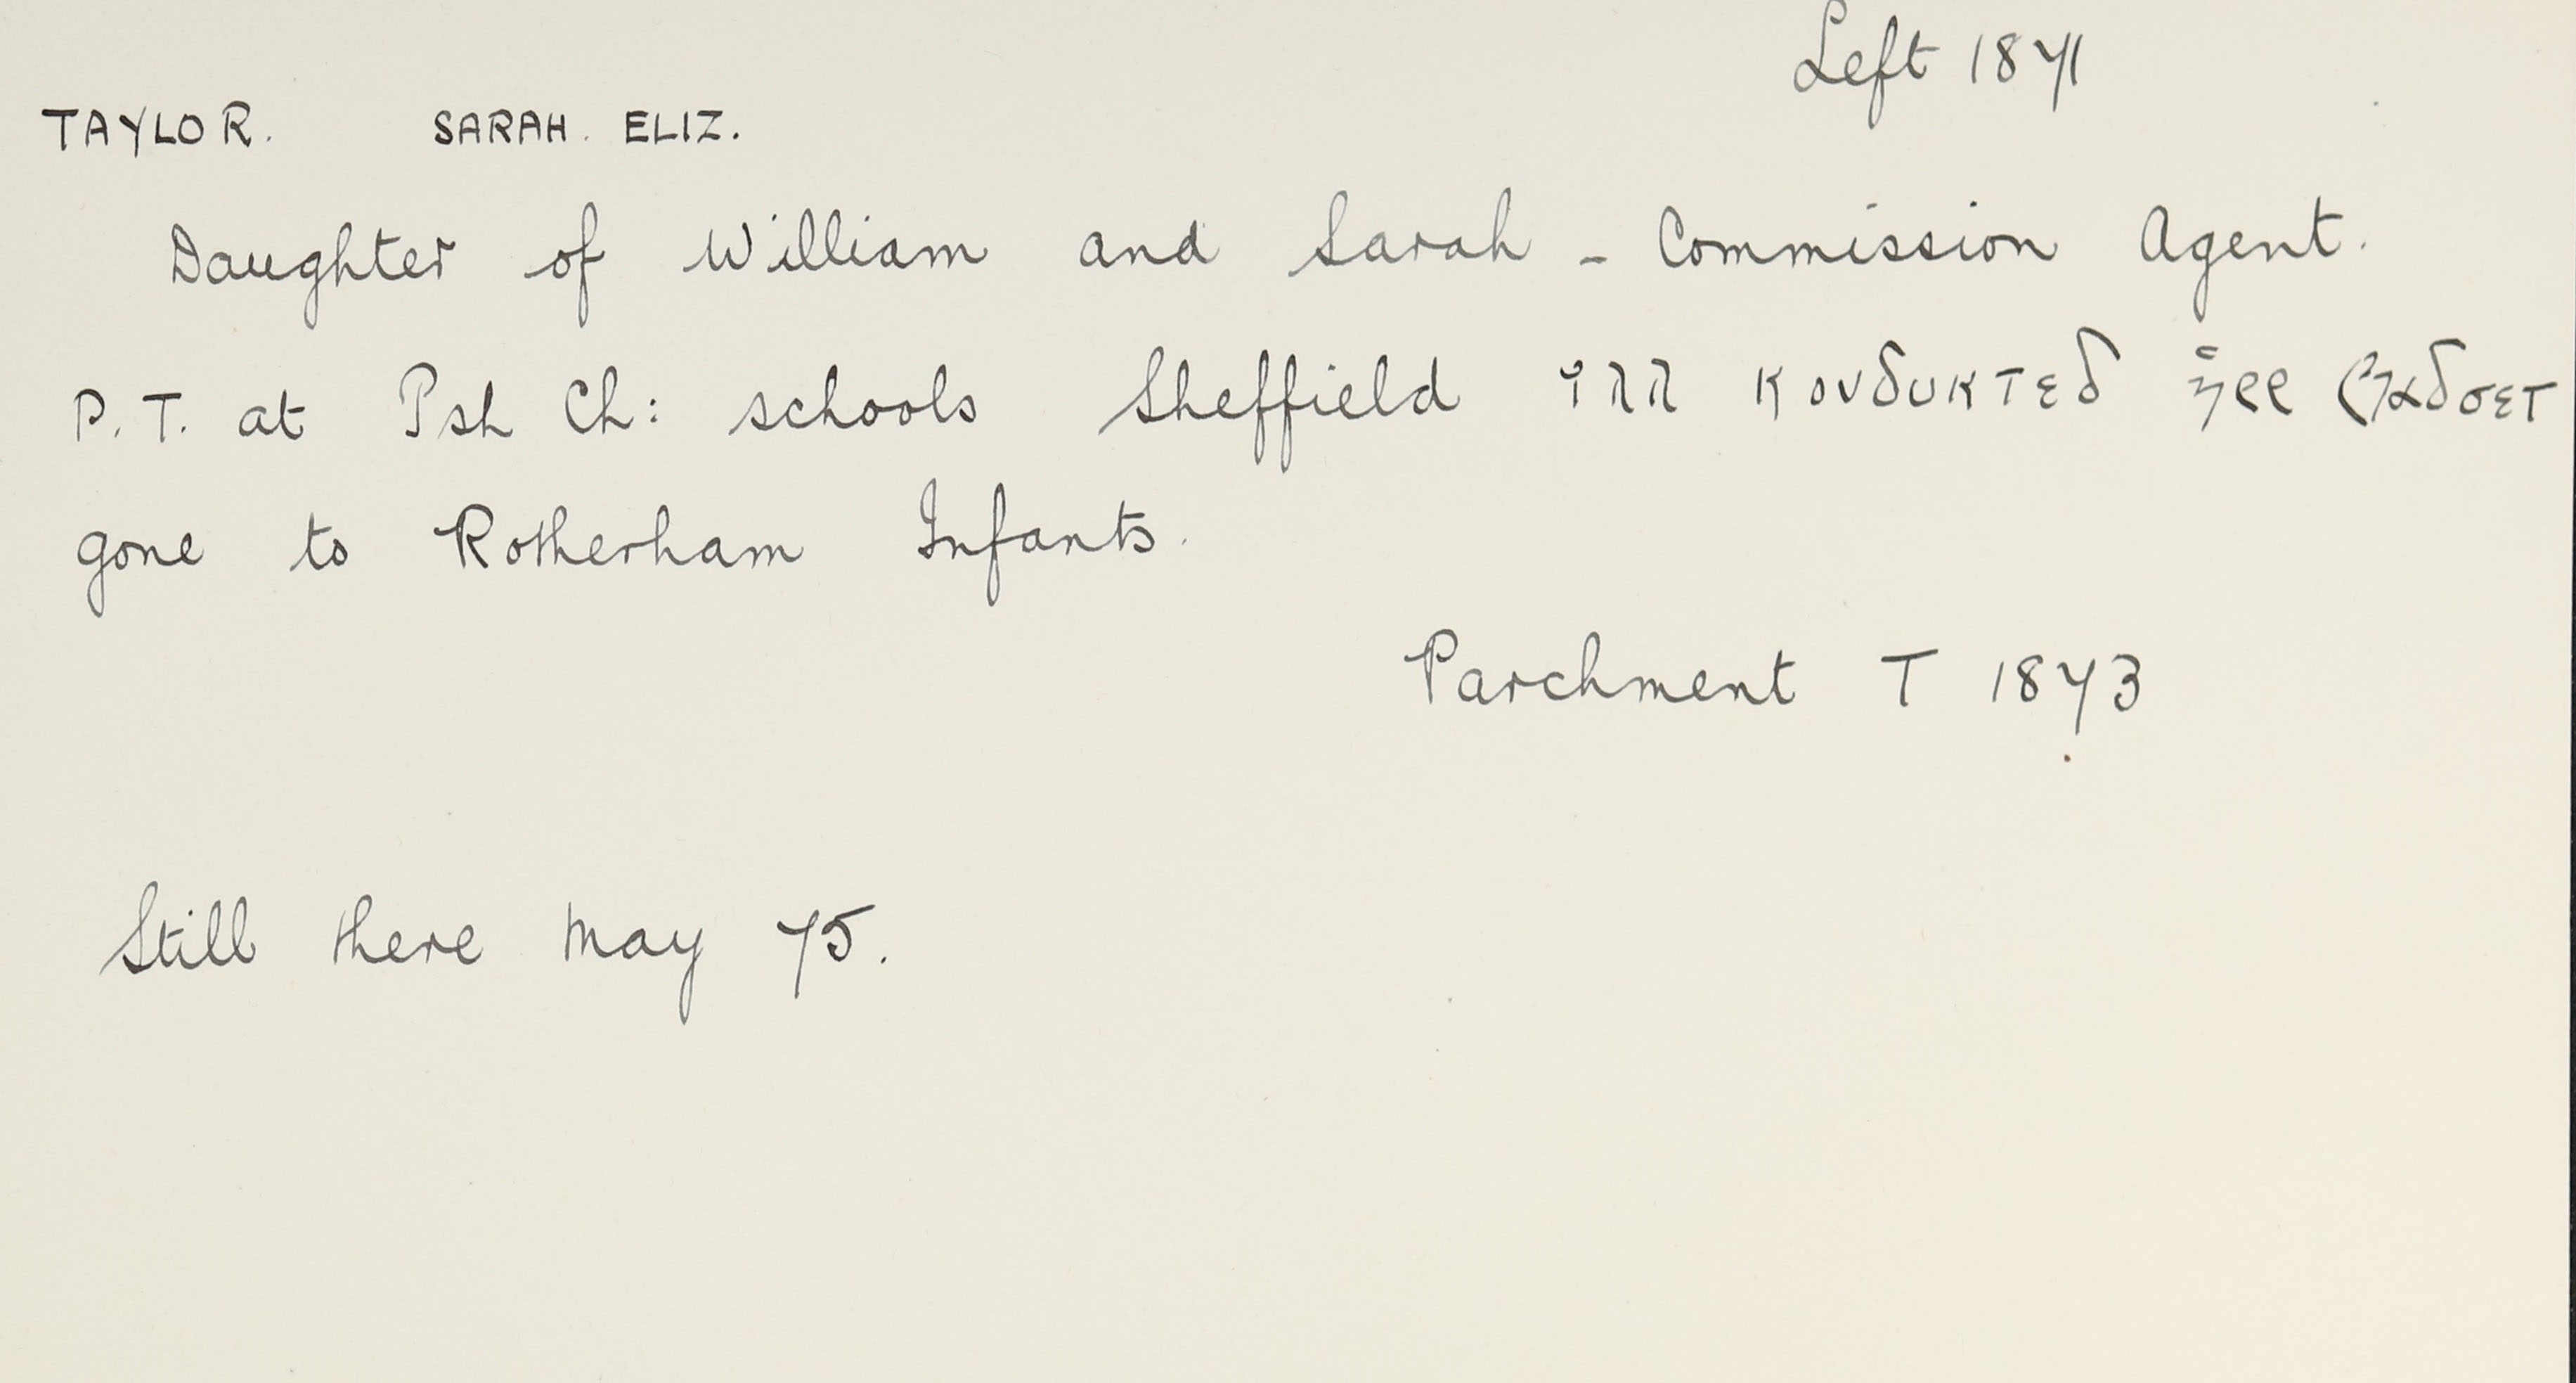 Left 1871
TAYLOR. SARAH. ELIZ.
Daughter of William and Sarah - Commission Agent.
P.T. at Psh Ch: schools Sheffield ιλλ κονδυκτεδ
gone to Rotherham Infants.
Parchment T 1873
Still there May 75.